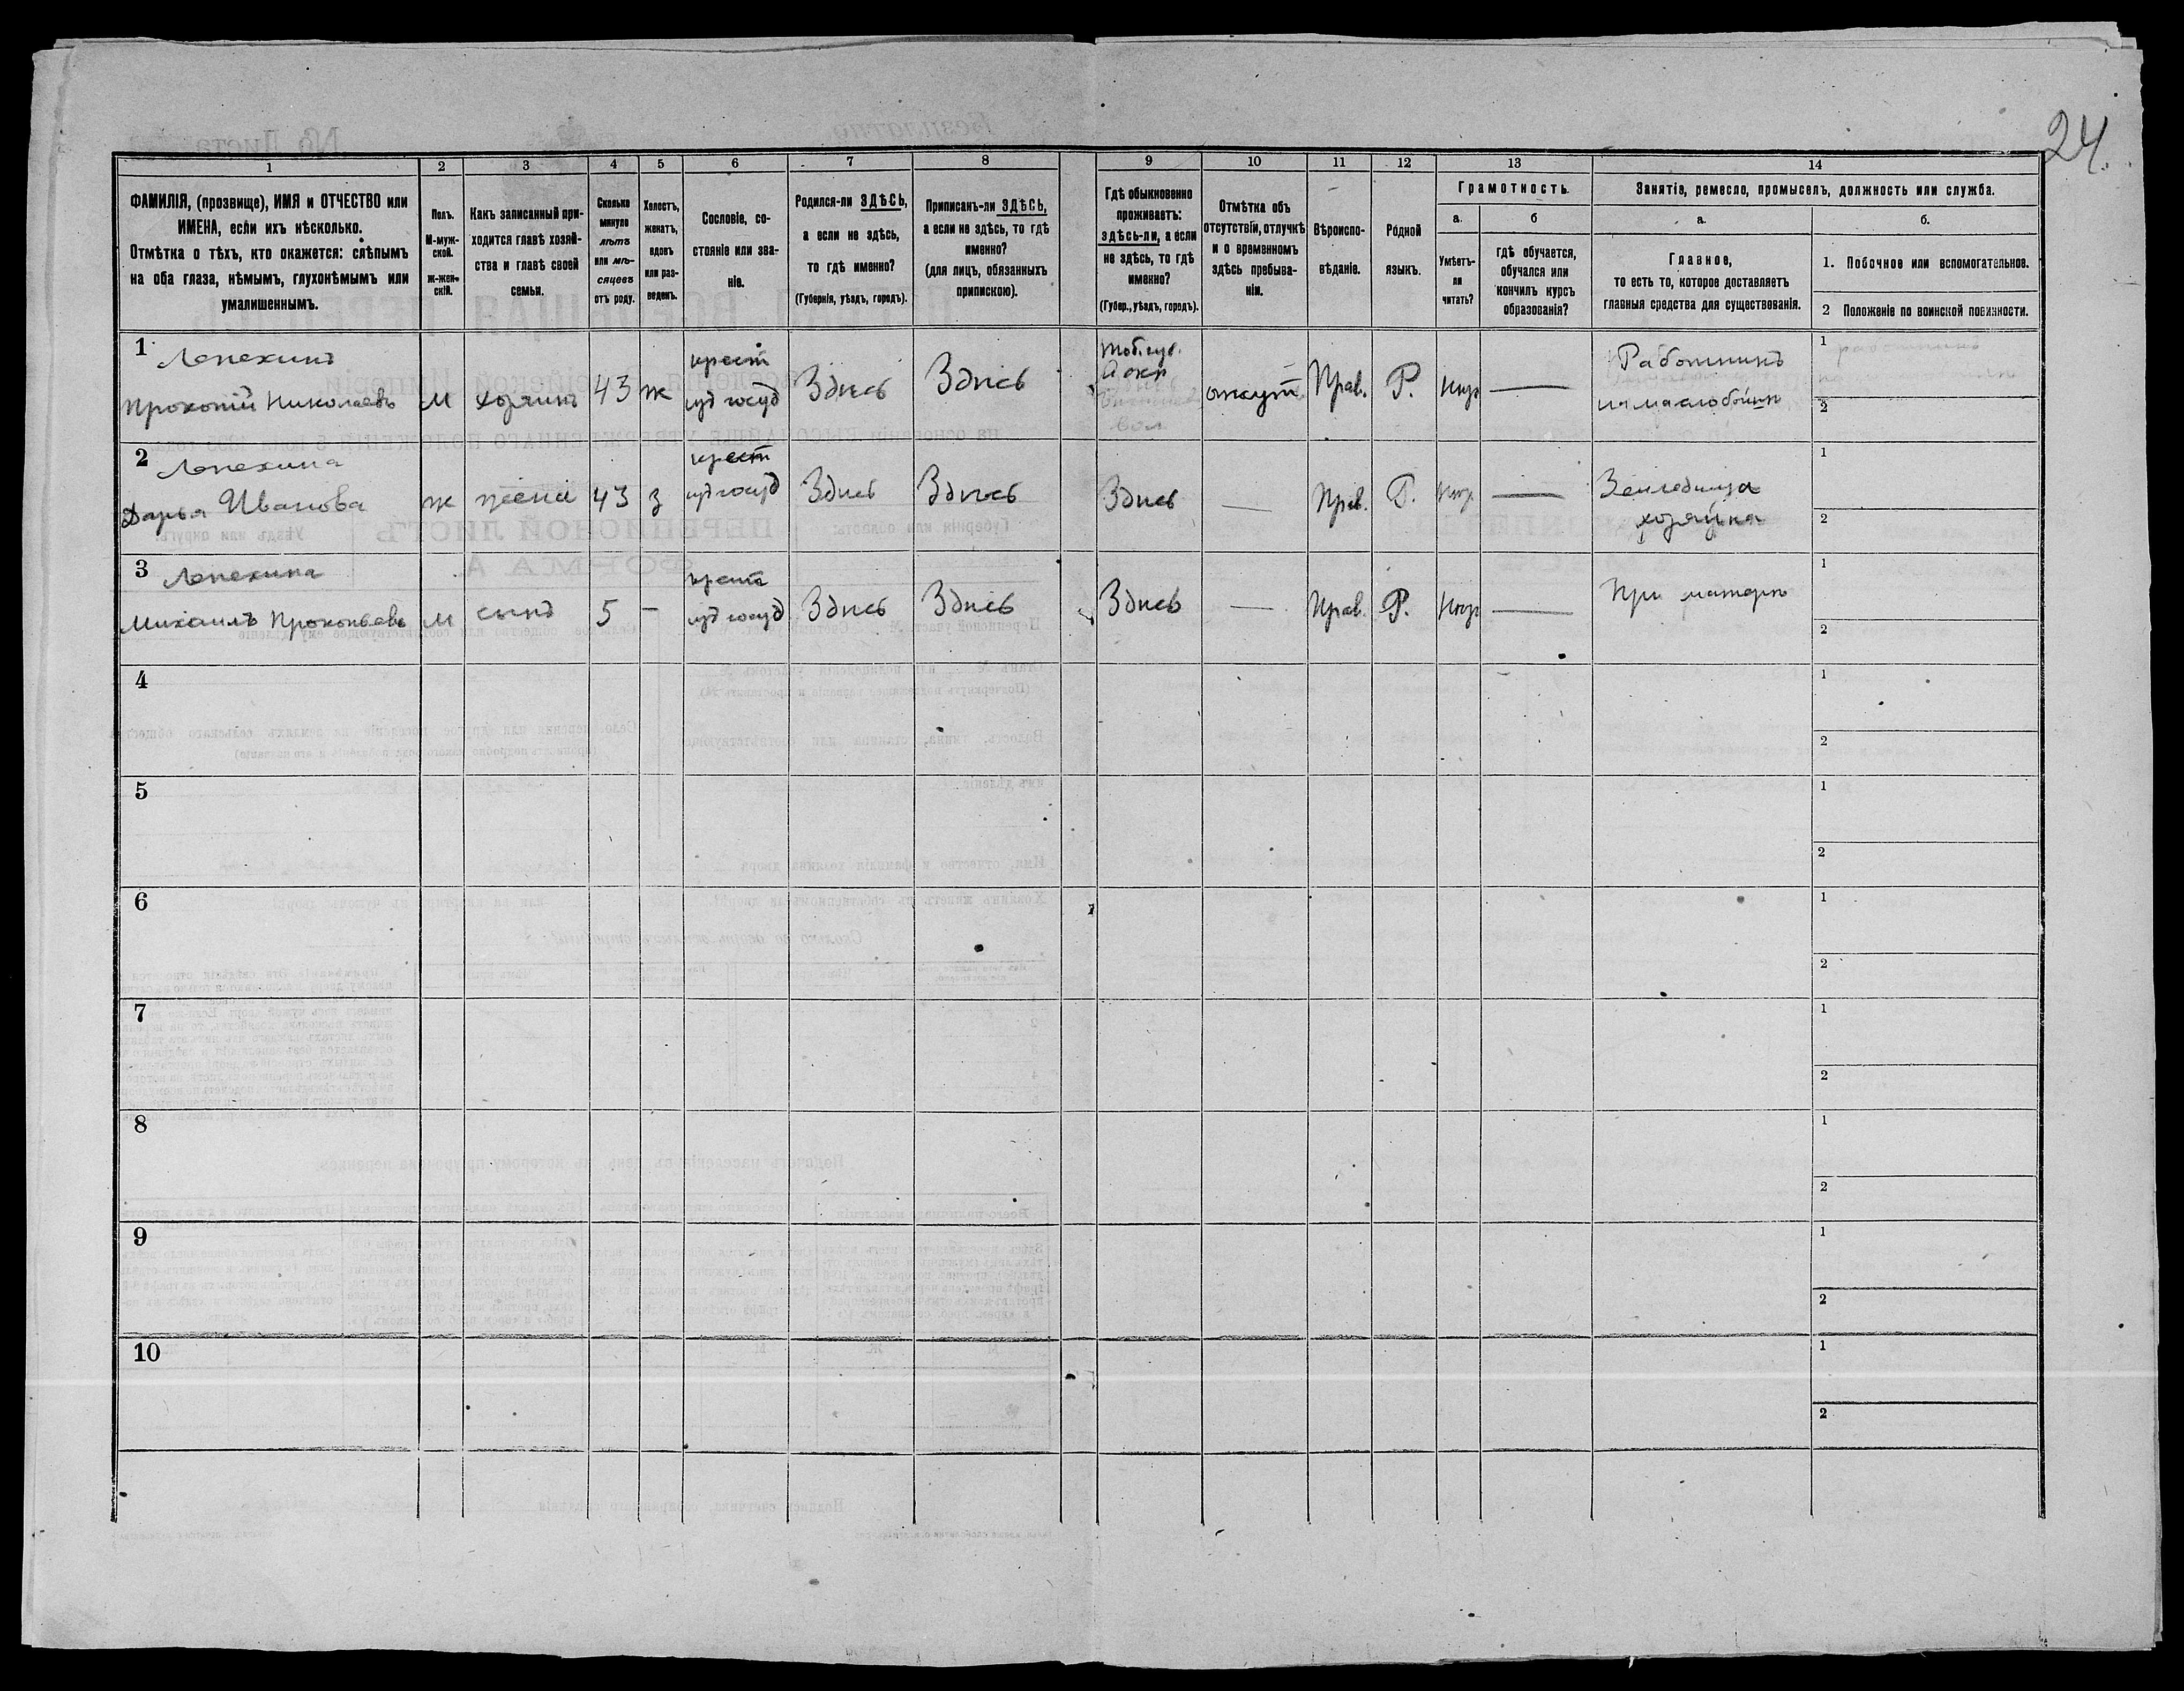 24.
1 2 3 4 5 6 7 8 9 10 11 12 13 14
ФАМИЛІЯ, (прозвище), ИМЯ и ОТЧЕСТВО или
ИМЕНА, если ихъ нѣсколько.
Отмѣтка о тѣхъ, кто окажется: слѣпымъ
на оба глаза, нѣмымъ, глухонѣмымъ или
умалишеннымъ.
Полъ.
М-муж-
ской.
Ж-жен-
скій.
Какъ записанный при-
ходится главѣ хозяй-
ства и главѣ своей
семьи.
Сколько
минуло
лѣтъ
или мѣ-
сяцевъ
отъ роду.
Холостъ,
женатъ,
вдовъ
или раз-
веденъ.
Сословіе, со-
стояніе или зва-
ніе.
Родился-ли ЗДѢСЬ,
а если не здѣсь,
то гдѣ именно?
(Губернія, уѣздъ, городъ).
Приписанъ-ли ЗДѢСЬ,
а если не здѣсь, то гдѣ
именно?
(для лицъ, обязанныхъ
припискою).
Гдѣ обыкновенно
проживаетъ:
здѣсь-ли, а если
не здѣсь, то гдѣ
именно?
(Губер., уѣздъ, городъ).
Отмѣтка объ
отсутствіи, отлучкѣ
и о временномъ
здѣсь пребыва-
ніи.
Вѣроиспо-
вѣданіе.
Родной
языкъ.
Грамотность.
а.
Умѣетъ-
ли
читать?
б
гдѣ обучается,
обучался или
кончилъ курсъ
образованія?
Занятіе, ремесло, промыселъ, должность или служба.
а.
Главное,
то есть то, которое доставляетъ
главныя средства для существованія.
б.
1. Побочное или вспомогательное.
2 Положеніе по воинской повинности.
1 Лепехинъ
Прокопій Николаевъ
М
хозяинъ
43
ж
крест
изъ госуд
Здѣсь
Здѣсь
Тоб. губ.
отсут
Прав.
Р.
Нѣт
—
Работникъ
на маслобойнѣ
1
2
2 Лепехина
Дарья Иванова
ж
жена
43
з
крест
изъ госуд
Здѣсь
Здѣсь
Здѣсь
—
Прав.
Р.
Нѣт
—
хозяйка
1
2
3 Лепехина
Михаилъ Прокопьевъ
М
сынъ
5
—
крест
изъ госуд
Здѣсь
Здѣсь
Здѣсь
—
Прав.
Р.
Нѣт
—
При матери
1
2
4
1
2
5
1
2
6
1
2
7
1
2
8
1
2
9
1
2
10
1
2